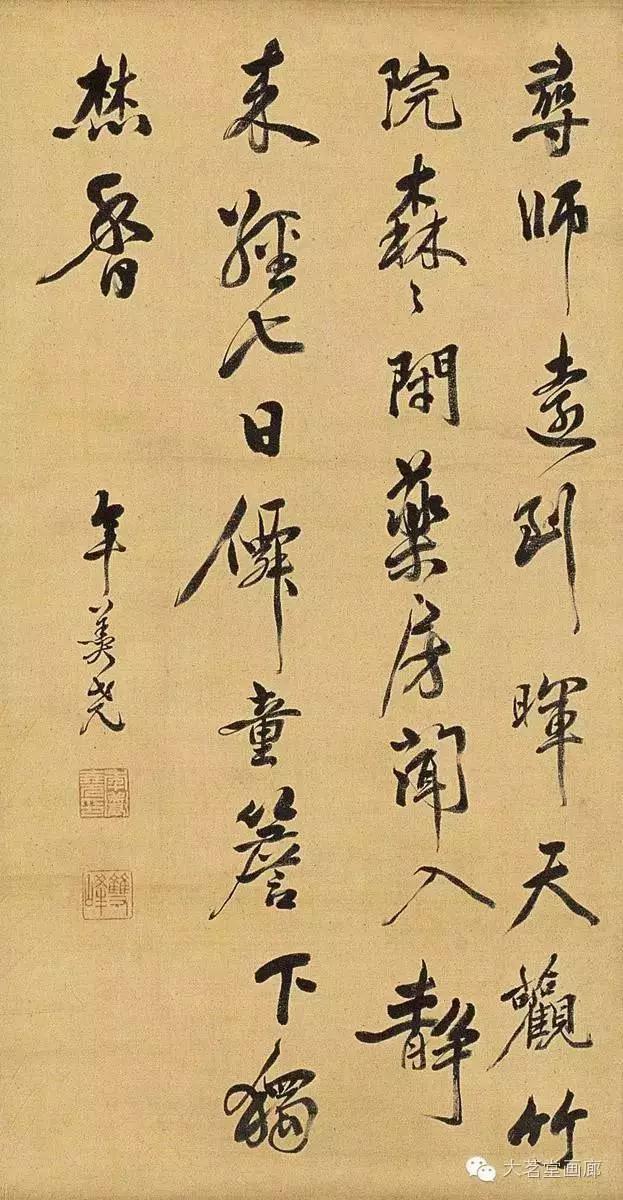 尋師遠到暉天觀竹
院森〻閑藥房聞入靜
来經七日僊童簷下獨
焚香
年羹尧
年羹堯印
雙峰
大茗堂画廊